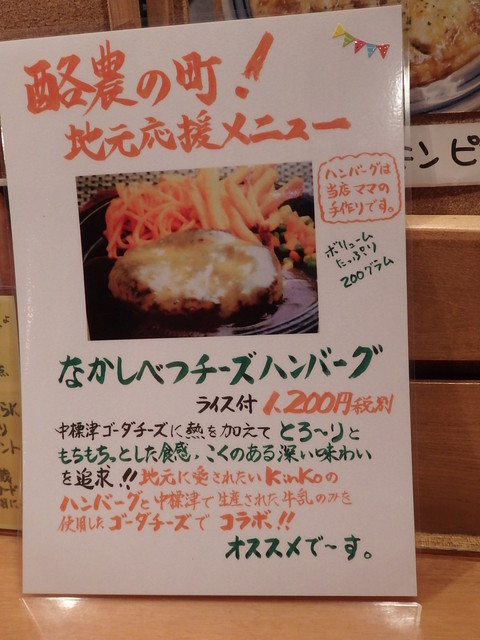 酪農の町!
地元応援メニュー
ハンバーグは
当店ママの
手作りです。
ボリューム
たっぷり
200グラム
なかしべつチーズハンバーグ
ライス付 1,200円税別
中標津ゴーダチーズに熱を加えてとろ~りと
もちもちっとした食感、こくのある深い味わい
を追求!!地元に愛されたいKinKoの
ハンバーグと中標津で生産された牛乳のみを
使用したゴーダチーズでコラボ!!
オススメで~す。
ンピ